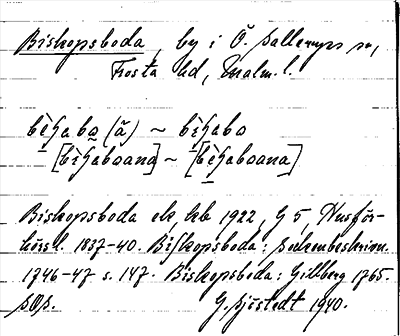 Biskopsboda, by i Ö. Sallerups sn,
Frosta hd, Malm. l.
bèsabo (ã) ~ bèsabo
[bèsaboana] ~ [bèsaboana]
Biskopsboda ek, kb 1922, G 5, Husför-
hörsl. 1837-40. Biskopsboda: sockenbeskrivn.
1746-47 s. 147. Biskopsboda: Gillberg 1765.
G. Sjöstedt 1940.